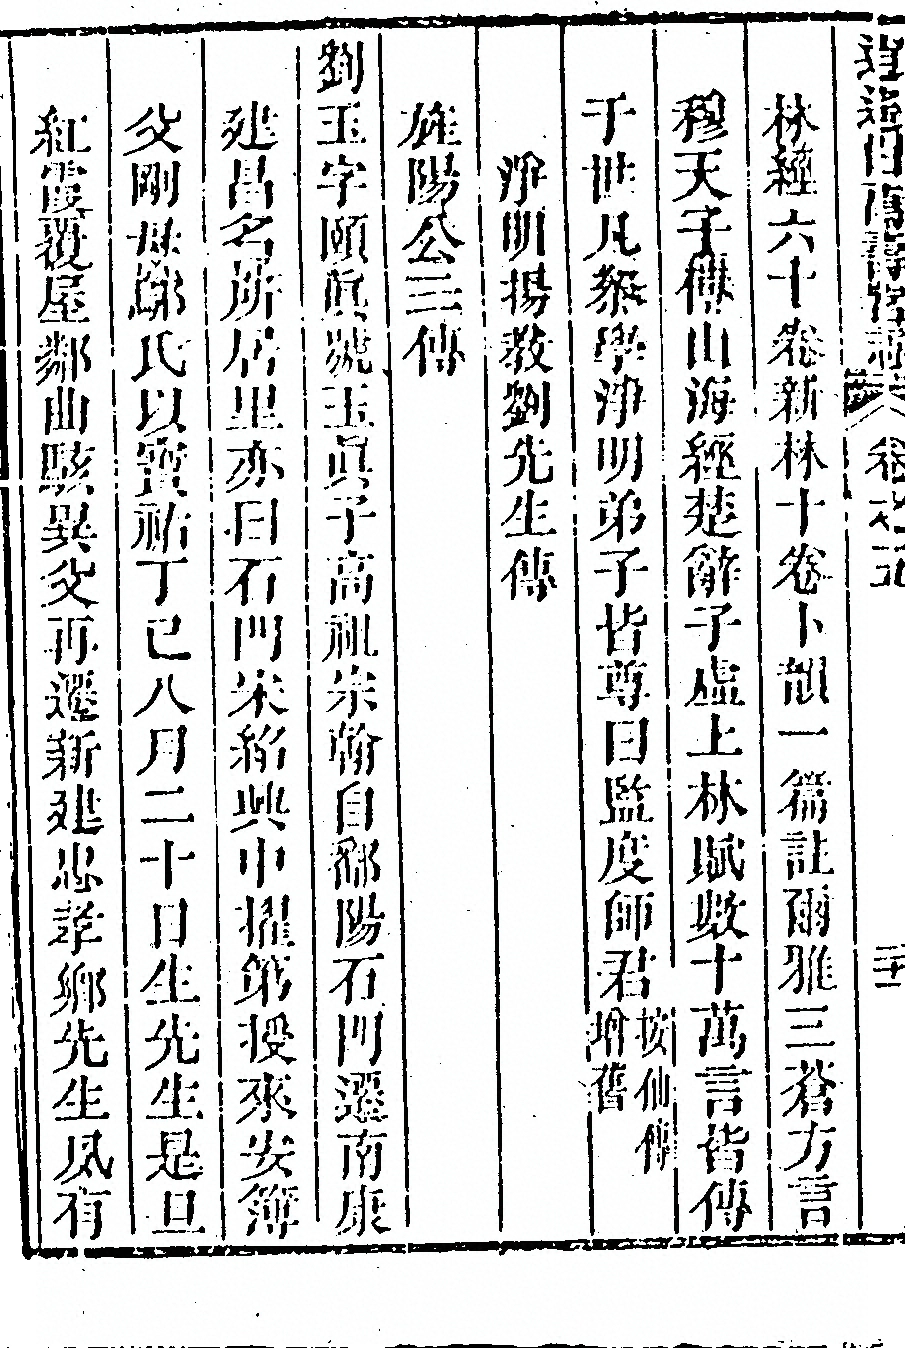 逍遙山萬壽宮志 卷之五 二十一
林經六十卷新林十卷卜韻一篇註爾雅三蒼方言
穆天子傳山海經楚辭子虛上林賦數十萬言皆傳
于世凡叅學淨明弟子皆尊曰監度師君 按仙傳增舊
淨明揚教劉先生傳
旌陽公三傳
劉玉字頤眞號玉眞子高祖宗翰自鄱陽石門遷南康
建昌名所居里亦曰石門宋紹興中擢第授來安簿
父剛母鄔氏以寶祐丁巳八月二十日生先生是旦
紅霞覆屋鄰曲駭異父再遷新建忠孝鄉先生夙有